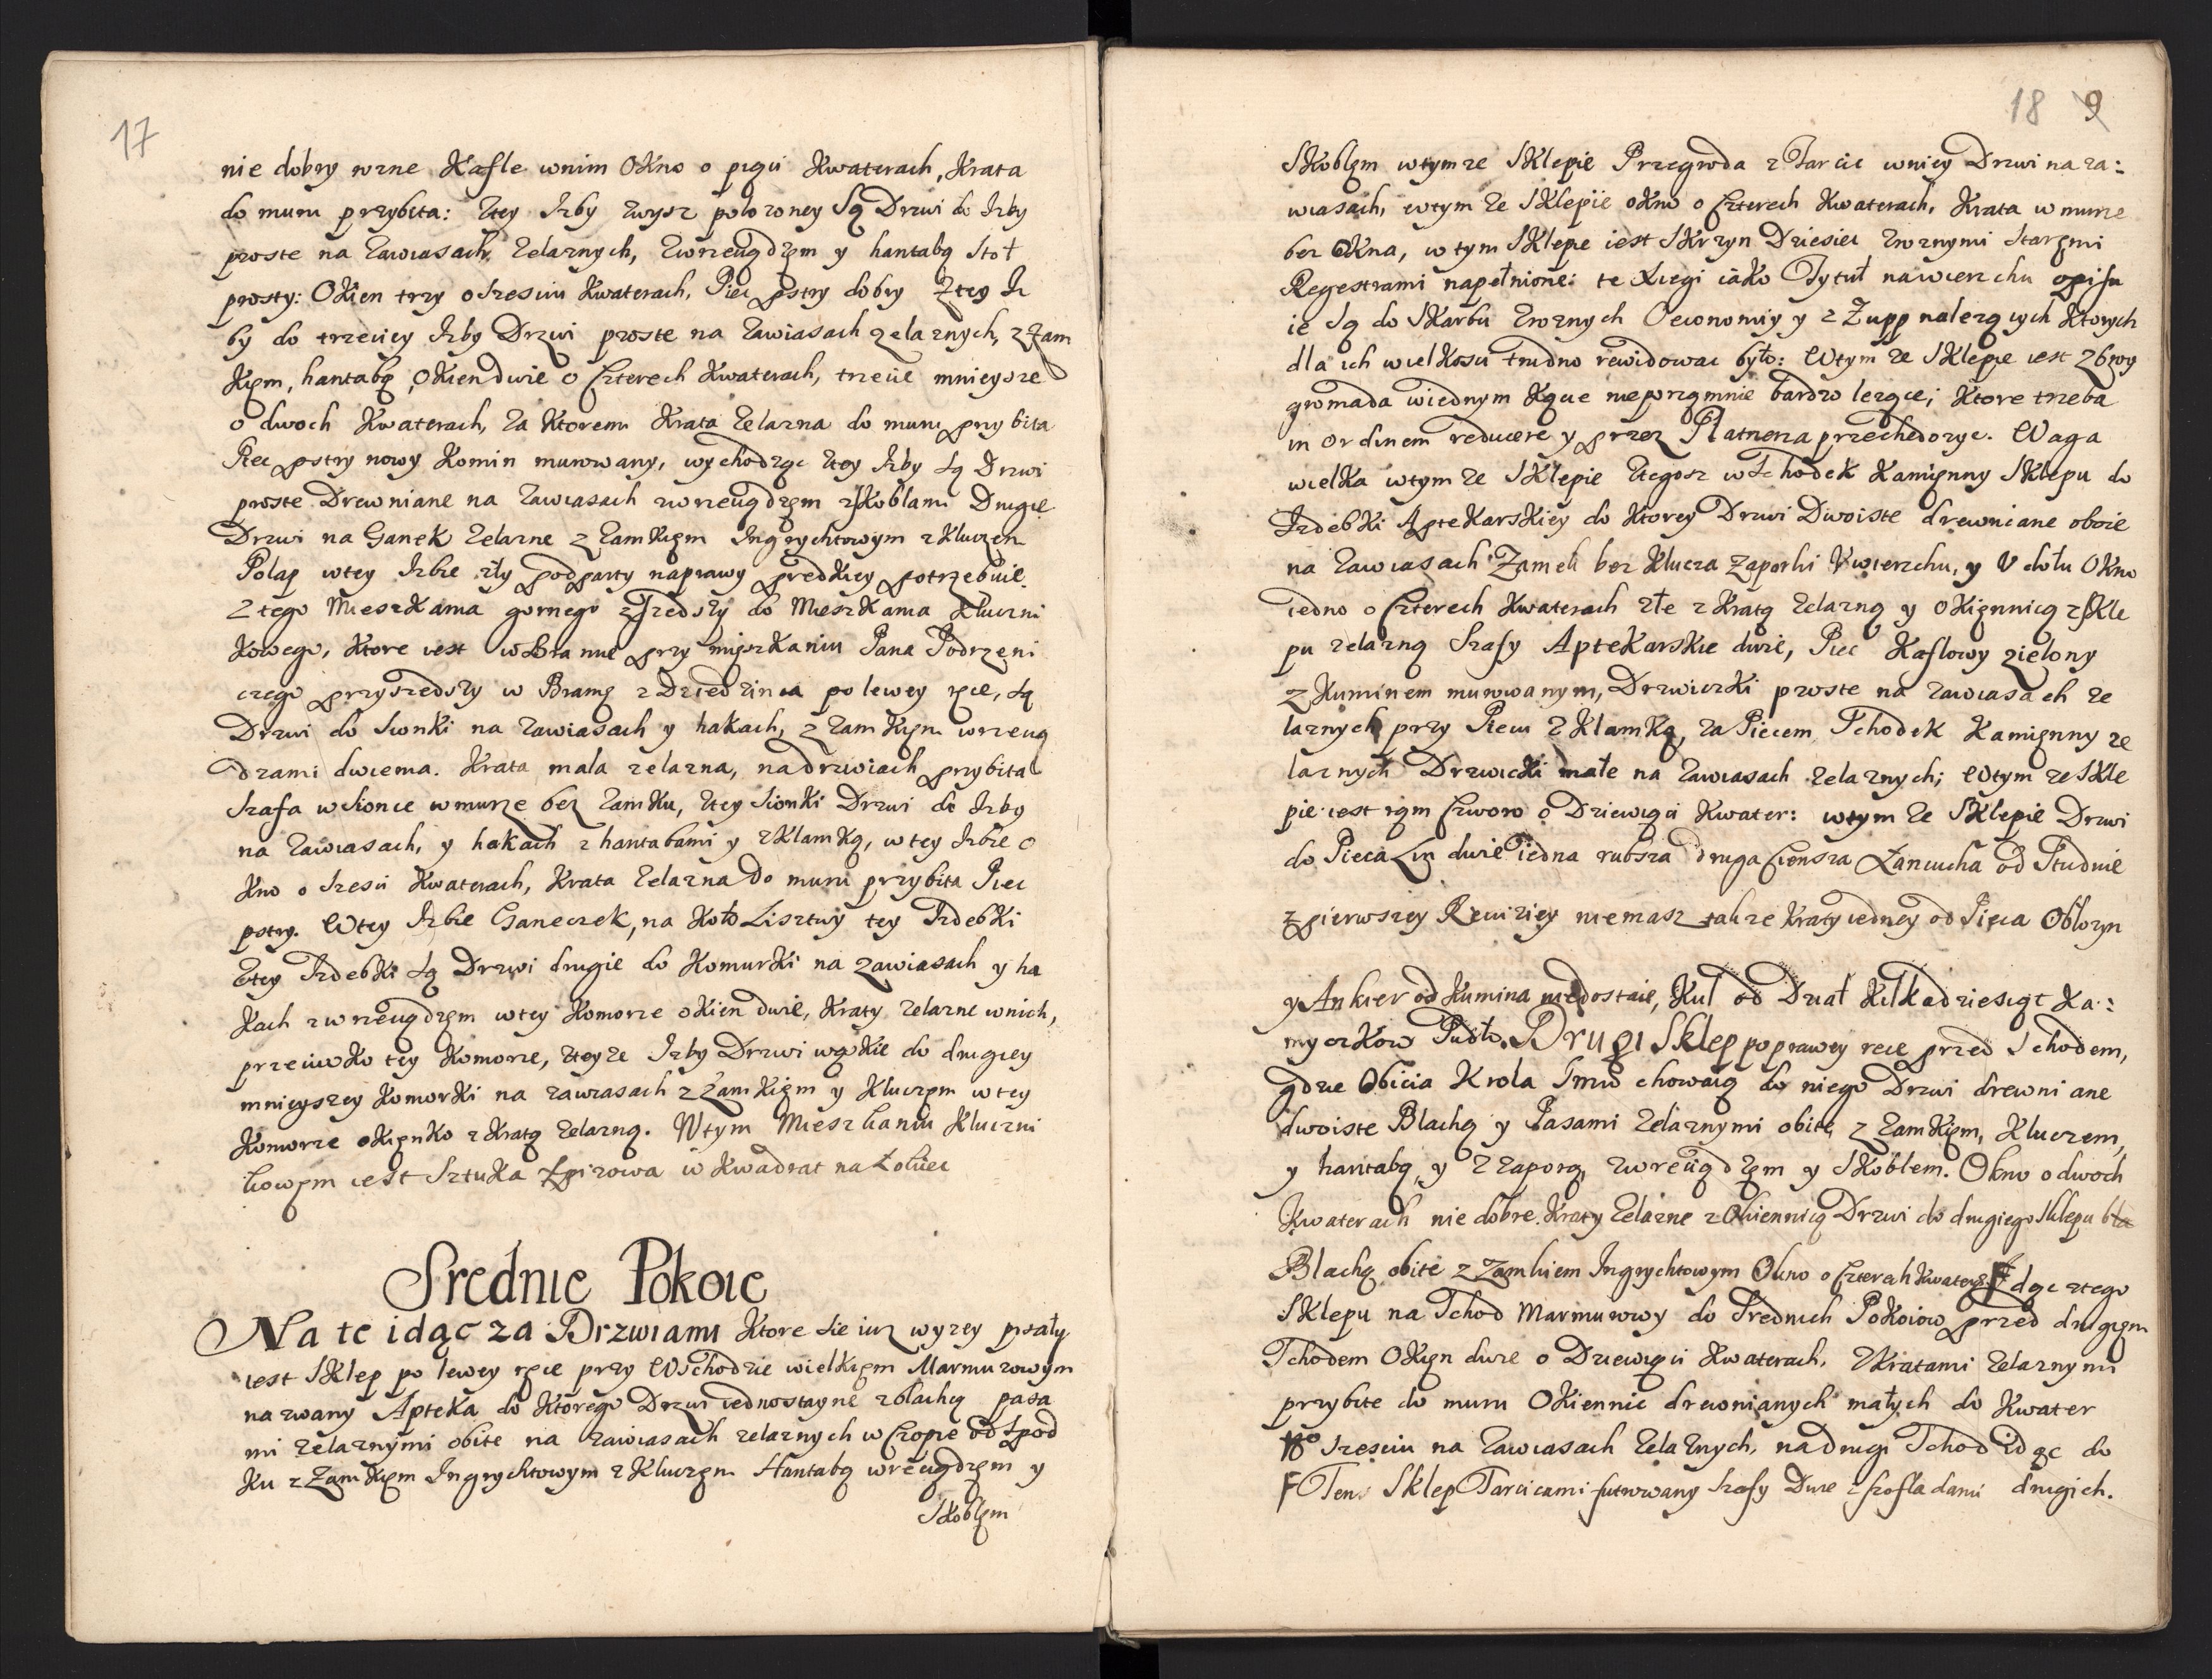 17
nie dobry rozne Kafle wnim OKno o piąci Kwaterach, Krata
do muru przybita: Ztey Izby zwysz polozoney Są Drzwi do Izby
proste na Zawiasach, Zelaznych, Zwrzeuądzęm y hantabą Stoł
prosty: OKien trzy o Szesciu Kwaterach, Piec pstry dobry Ztey Iz
by do trzeciey Izby Drzwi proste na Zawiasach zelaznych, z Zam
Kięm, hantabą, OKien dwie o Czterech Kwaterach, trzecie mnieysze
o dwoch Kwaterach, za Ktorem Krata Zelazna do muru przybita
Piec pstry nowy Komin murowany, wychodząc Ztey Izby są Drzwi
proste Drewniane na Zawiasach zwrzeuądzęm zSKoblami Drugie
Drzwi na Ganek Zelazne z ZamKięm Ingrychtowym z Kluczem
Polap wtey Izbie zły podparty naprawy prędKiey potrzebuie.
Z tego MieszKania gornego zszedszy do MieszKania Kluczni
Kowego, Ktore iest wBramie przy mięszKaniu Pana Podrzęni
czego przyszedszy w Bramę z Dziedzinca po lewey ręce, są
Drzwi do Sionki na Zawiasach y hakach, z ZamKięm wrzeuą
dzami dwiema. Krata mala zelazna, nadrzwiach przybita
Szafa wSionce wmurze bez ZamKu, Ztey SionKi Drzwi do Izby
na Zawiasach, y hakach z hantabami y zKlamKą, w tey Izbie o
Kno o Szesci Kwaterach, Krata Zelazna do muru przybita Piec
pstry. Wtey Izbie Ganeczek, na Koło Lisztwy tey IzdebKi
Ztey IzdebKi są Drzwi drugie do KomurKi na Zawiasach y ha
Kach zwrzeuądzęm wtey Komorze oKien dwie, Kraty zelazne wnich,
przeciwKo tey Komorze, zteyze Izby Drzwi wąsKie do drugiey
mnieyszey KomorKi na zawiasach z ZamKięm y Kluczęm w tey
Komorze oKięnKo z Kratą Zelazną. Wtym Mieszkaniu Kluczni
kowęm iest SztuKa Spizowa w Kwadrat na
Srednie Pokoie
Na te idąc za Drzwiami Ktore sie iuz wyzey pisały
iest SKlep po lewey ręce przy Wschodzie wielKięm Marmurowym
nazwany ApteKa do Ktorego Drzwi iednostayne zblachą pasa
mi zelaznymi obite na zawiasach zelaznych w Czopie odSpod
Ku z ZamKięm Ingrychtowym z Kluczęm Hantabą wrzeuądzęm y
SKoblęm
18 9
SKoblęm wtymze SKlepie Przegroda z Tarcic wniey Drzwi naza:
wiasach, wtym ze SKlepie oKno o Czterech Kwaterach, Krata w murze
bez oKna, w tym SKlepie iest SKrzyn Dziesiec Zroznymi Staręmi
Regestrami napełnione: te Xiegi iako Tytuł nawierzchu opisu
ie są do SKarbu Zroznych Oeconomiy y z Zupp nalezących Ktorych
dla ich wielKosci trudno rewidowac było: Wtym ze SKlepie iest zbroy
gromada wiednym Kącie nieporząmnie bardzo lezące; Ktore trzeba
in ordinem reducere y przez Płatnerza przechędozyc. Waga
wielKa wtym ze SKlepie Ztegosz wSchodek Kamięnny SKlepu do
IzdebKi AptekarsKiey do Ktorey Drzwi Dwoiste drewniane oboie
na Zawiasach Zamek bez Klucza zaporki V wierzchu, y V dołu OKno
iedno o Czterech Kwaterach złe z Kratą zelazną y OKięnnicą zSKle
pu zelazną Szafy AptekarsKie dwie, Piec Kaflowy zielony
z Kuminem murowanym, DrzwiczKi proste na zawiasach ze
laznych przy Piecu z KlamKą, za Piecem Schodek Kamięnny ze
laznych DrzwiczKi małe na Zawiasach zelaznych; Wtym ze SKle
pie iest ram Czworo o Dziewiąci Kwater: wtym ze SKlepie Drzwi
do Pieca Lin dwie iedna rubsza druga Ciensza Łancucha od Studnie
zpierwszey Rewiziey niemasz takze Kraty iedney od Pieca Obłozyn
y Ankier od Kumina niedostaie, Kul od Dział KilKadziesiąt Ka:
myczKow Pudło. Drugi Sklep poprawey rece przed Schodem,
gdzie Obicia Krola Imci chowaią do niego Drzwi drewniane
dwoiste Blachą y Pasami Zelaznymi obite, z ZamKięm, Kluczem,
y hantabą, y Z zaporą, zwrzeuądzęm y SKoblem. Okno o dwoch
Kwaterach nie dobre. Kraty Zelazne z Okiennicą Drzwi do drugiego Sklepu bla
Blachą obite z Zamkiem Ingrychtowym Okno o Czterech Kwaterach F Idąc ztego
SKlepu na Schod Marmurowy do Srednich PoKoiow przed drugięm
Schodem OKięn dwie o Dziewiąci Kwaterach, zKratami Zelaznymi
przybite do muru OKiennic drewnianych małych do Kwater
Szesciu na Zawiasach Zelaznych, nadrugi Schod idąc do
F Ten SKlep Tarcicami futrowany Szafy Dwie zszofladami drugich.